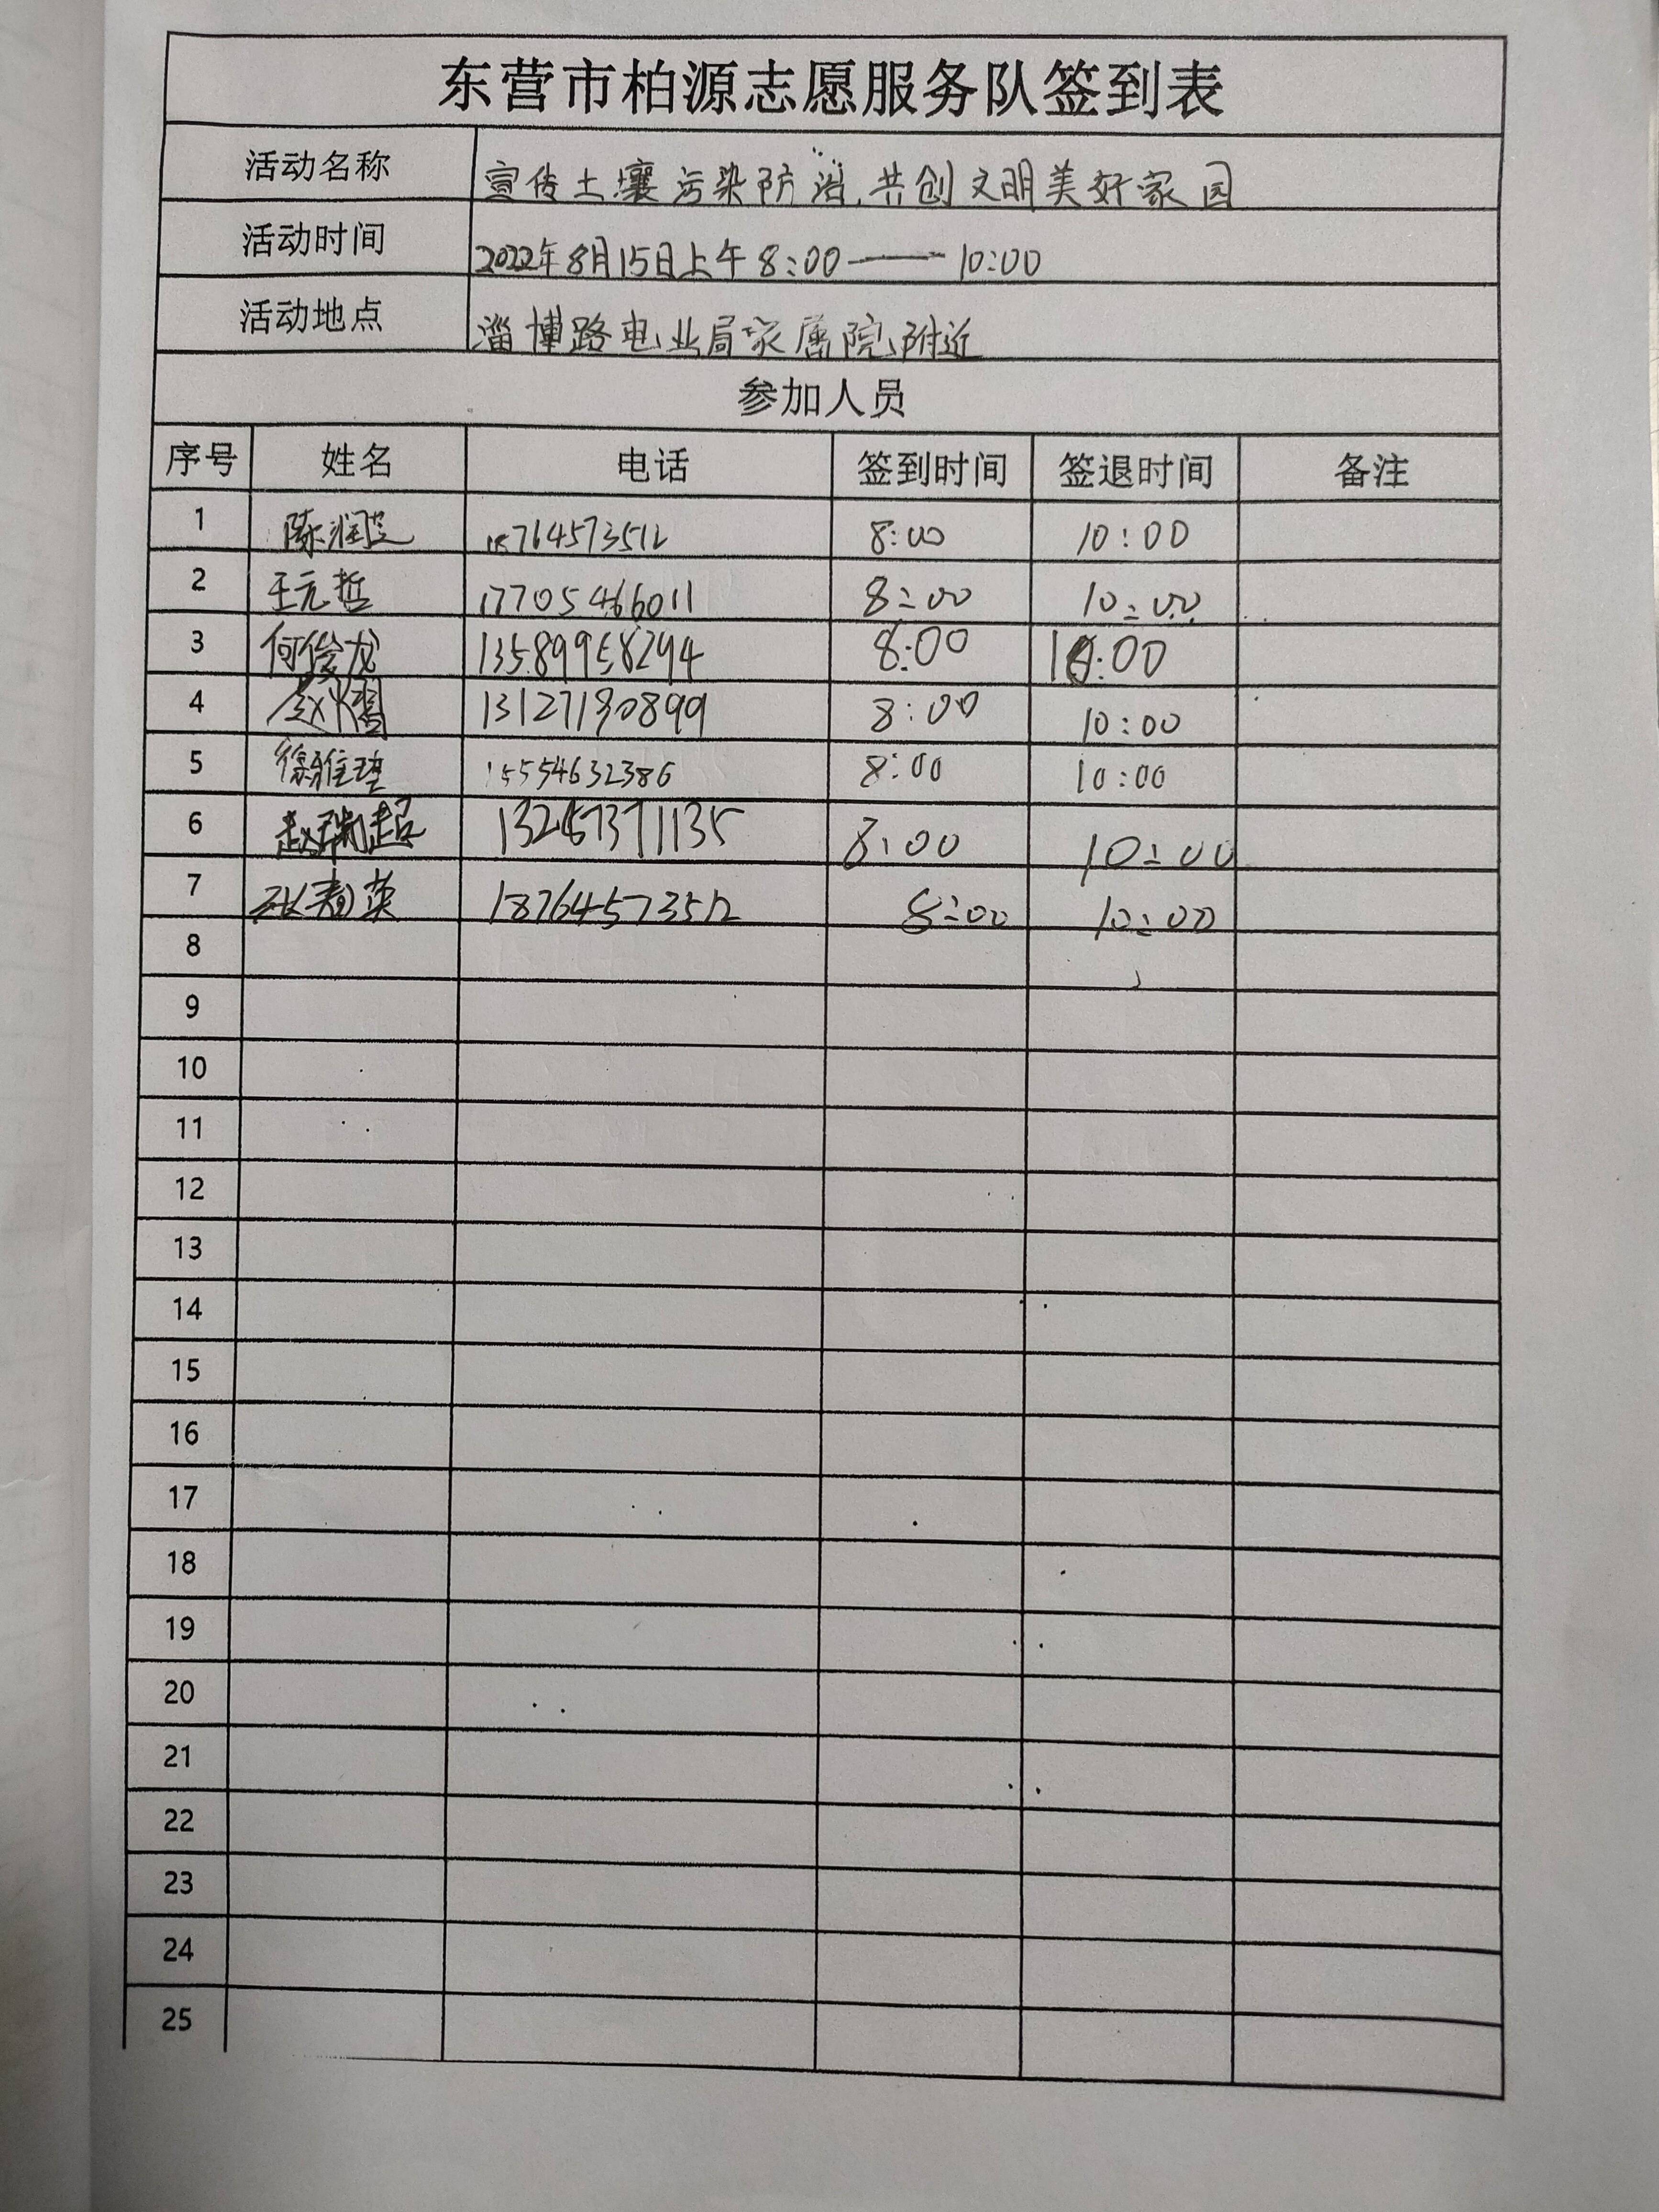 东营市柏源志愿服务队签到表
活动名称 宣传土壤污染防治,共创文明美好家园
活动时间 2022年8月15日上午8:00——10:00
活动地点 淄博路电业局家属院附近
参加人员
序号 姓名 电话 签到时间 签退时间 备注
1 陈润芝 18764573512 8:00 10:00
2 王元哲 17705466011 8:00 10:00
3 何俊龙 13589958294 8:00 10:00
4 13127190899 8:00 10:00
5 15554632386 8:00 10:00
6 赵瑞超 8:00 10:00
7 张春英 18764573512 8:00 10:00
8
9
10
11
12
13
14
15
16
17
18
19
20
21
22
23
24
25